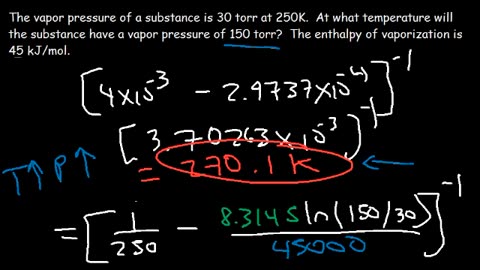 The vapor pressure of a substance is 30 torr at 250K. At what temperature will
the substance have a vapor pressure of 150 torr? The enthalpy of vaporization is
45 kJ/mol.
[4x10⁻³ - 2.9737x10⁻⁴]⁻¹
[3.70263x10⁻³]⁻¹
T↑ P↑ = 270.1 K ←
= [1/250 - 8.3145 ln(150/30)/45000]⁻¹